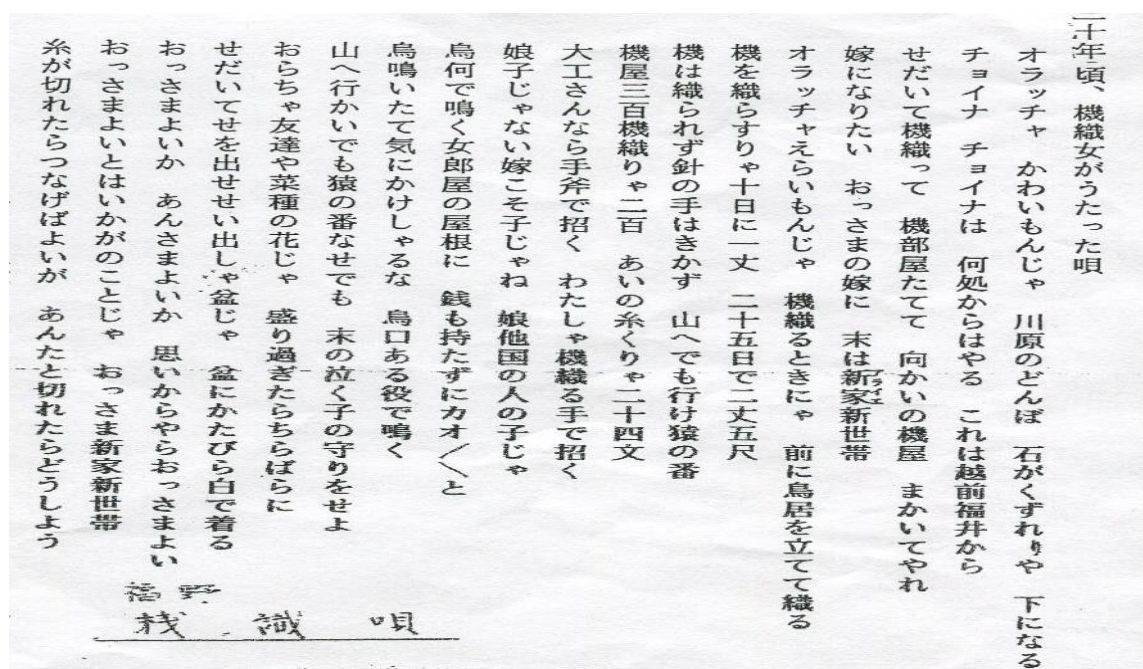 二十年頃、機織女がうたった唄
オラッチャ かわいもんじゃ 川原のどんぼ 石がくずれりや 下になる
チョイナ チョイナは 何処からはやる これは越前福井から
せだいて機織って 機部屋たてて 向かいの機屋 まかいてやれ
嫁になりたい おっさまの嫁に 末は新家新世帯
アライエ
オラッチャえらいもんじゃ 機織るときにゃ 前に鳥居を立てて織る
機を織らすりゃ十日に一丈 二十五日で二丈五尺
機は織られず針の手はきかず 山へでも行け猿の番
機屋三百機織りゃ二百 あいの糸くりゃ二十四文
大工さんなら手斧で招く わたしゃ機織る手で招く
娘子じゃない嫁こそ子じゃね 娘他国の人の子じゃ
烏何で鳴く女郎屋の屋根に 銭も持たずにカオ〱と
烏鳴いたて気にかけしゃるな 烏口ある役で鳴く
山へ行かいでも猿の番なせでも 末の泣く子の守りをせよ
おらちゃ友達や菜種の花じゃ 盛り過ぎたらちらばらに
せだいてせを出せせい出しゃ盆じゃ 盆にかたびら白で着る
おっさまよいか あんさまよいか 思いからやらおっさまよい
おっさまよいとはいかがのことじゃ おっさま新家新世帯
糸が切れたらつなげばよいが あんたと切れたらどうしよう
福野
機織唄